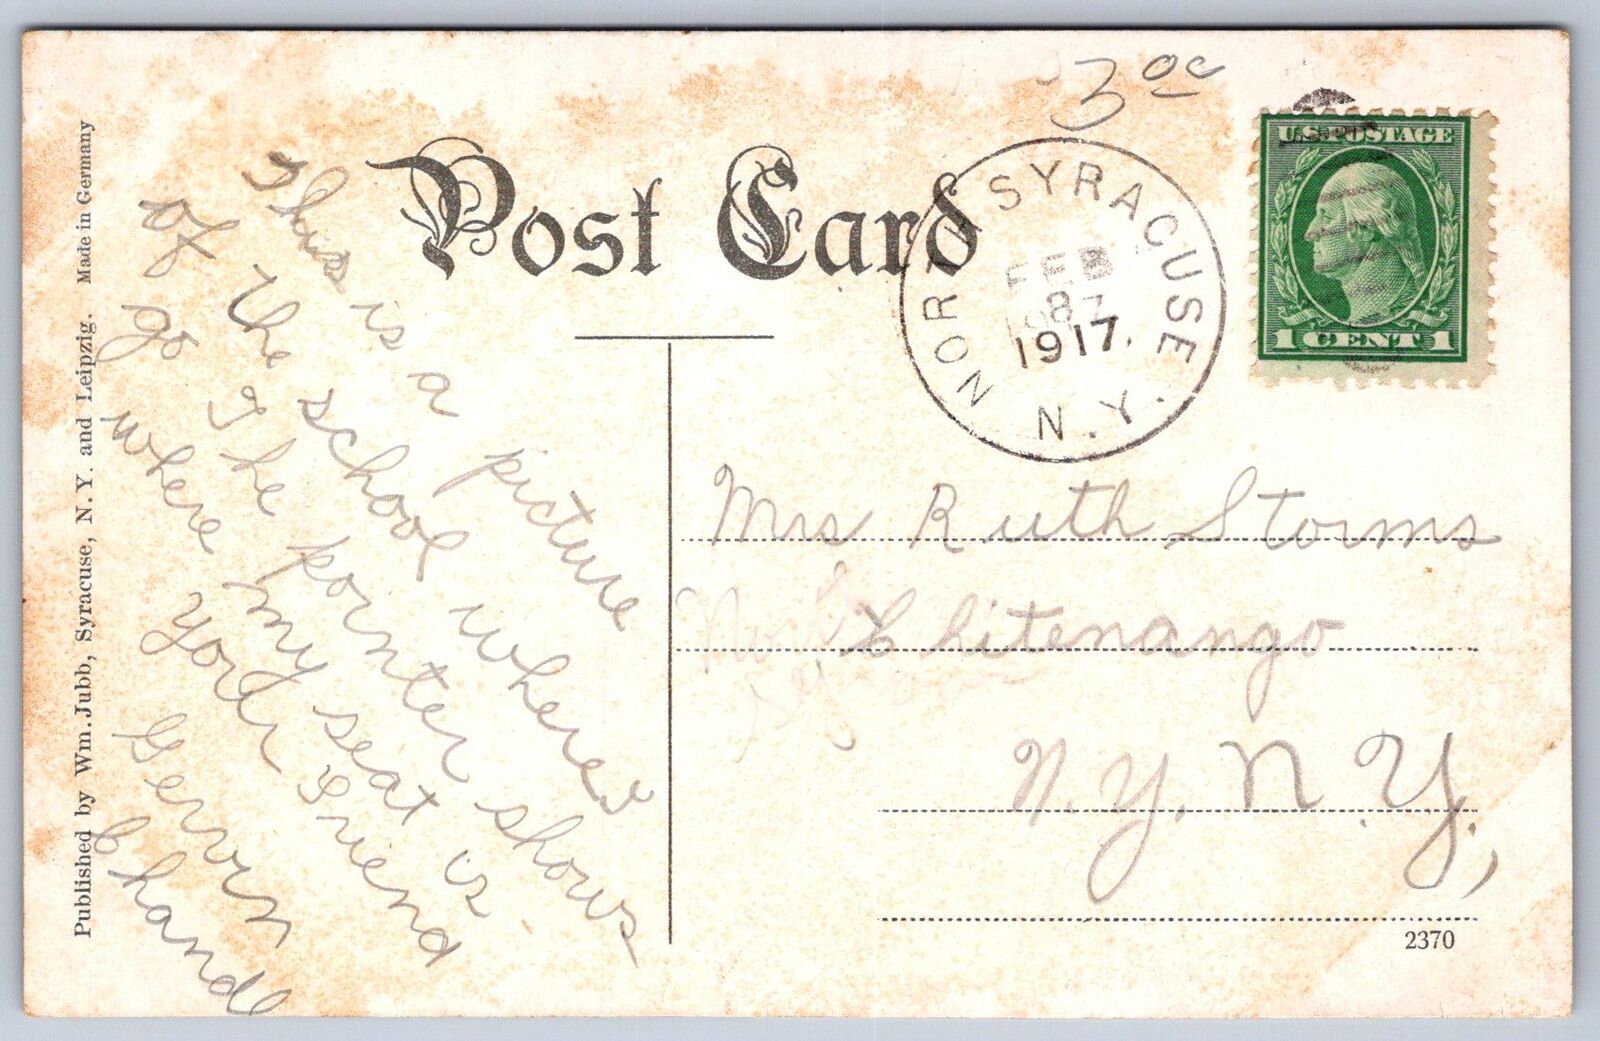 3 00
Post Card
U.S. POSTAGE
1 CENT 1
NORTH SYRACUSE
FEB
8
1917.
N.Y.
This is a picture
of the school where
go I The pointer shows
where my seat is
your Friend
Gervin
Chand
Mrs Ruth Storms
Chitenango
N.Y. N.Y.,
2370
Published by Wm. Jubb, Syracuse, N. Y. and Leipzig. Made in Germany